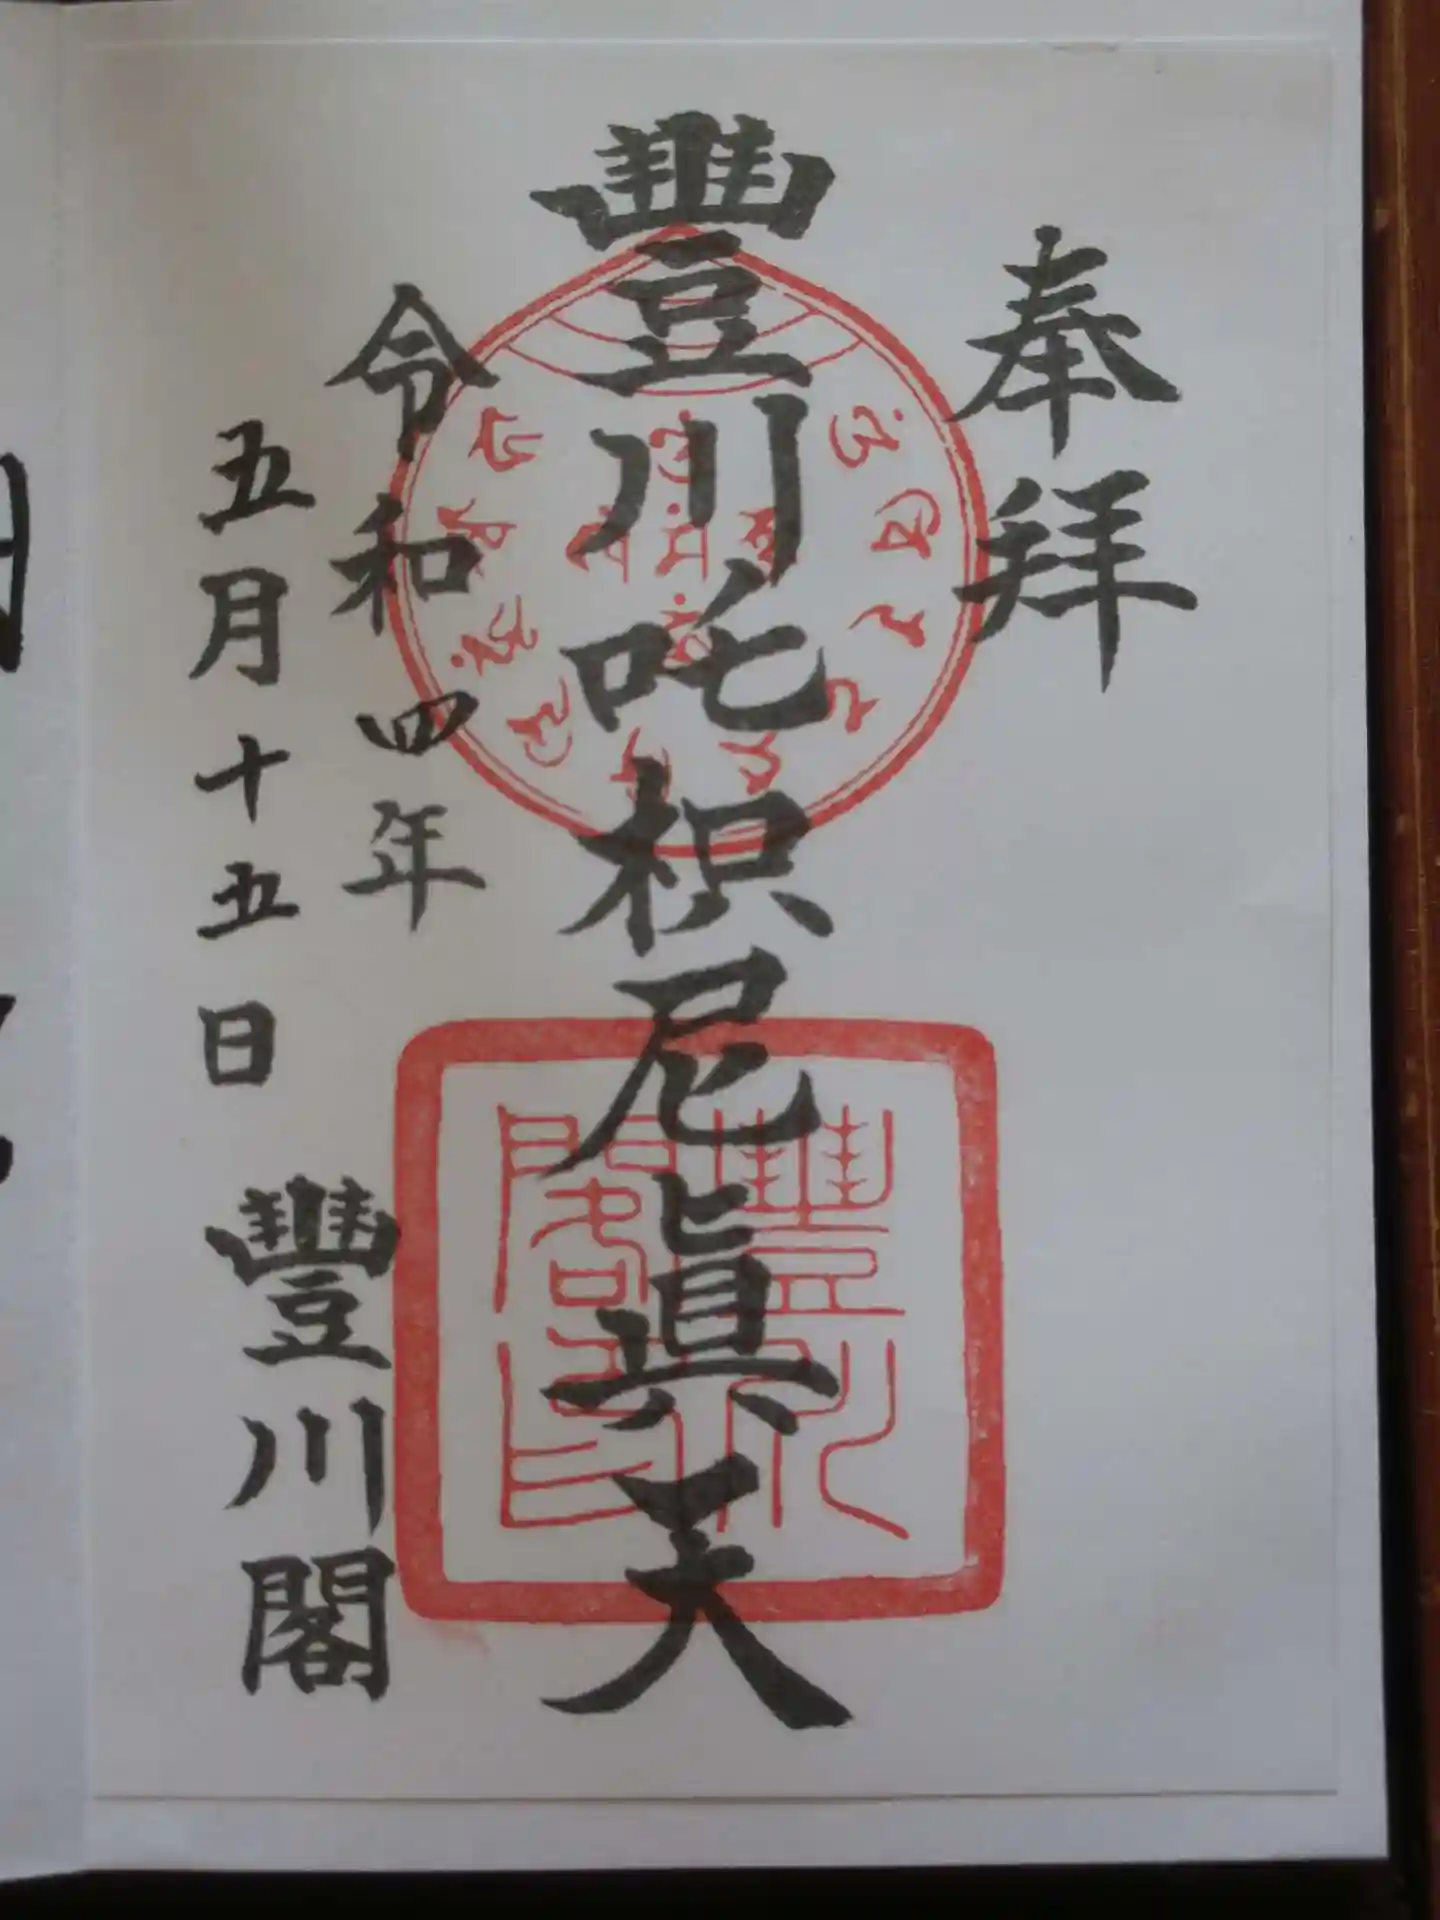 奉拜
豐川吒枳尼眞天
令和四年
五月十五日
豐川閣
豐川閣印